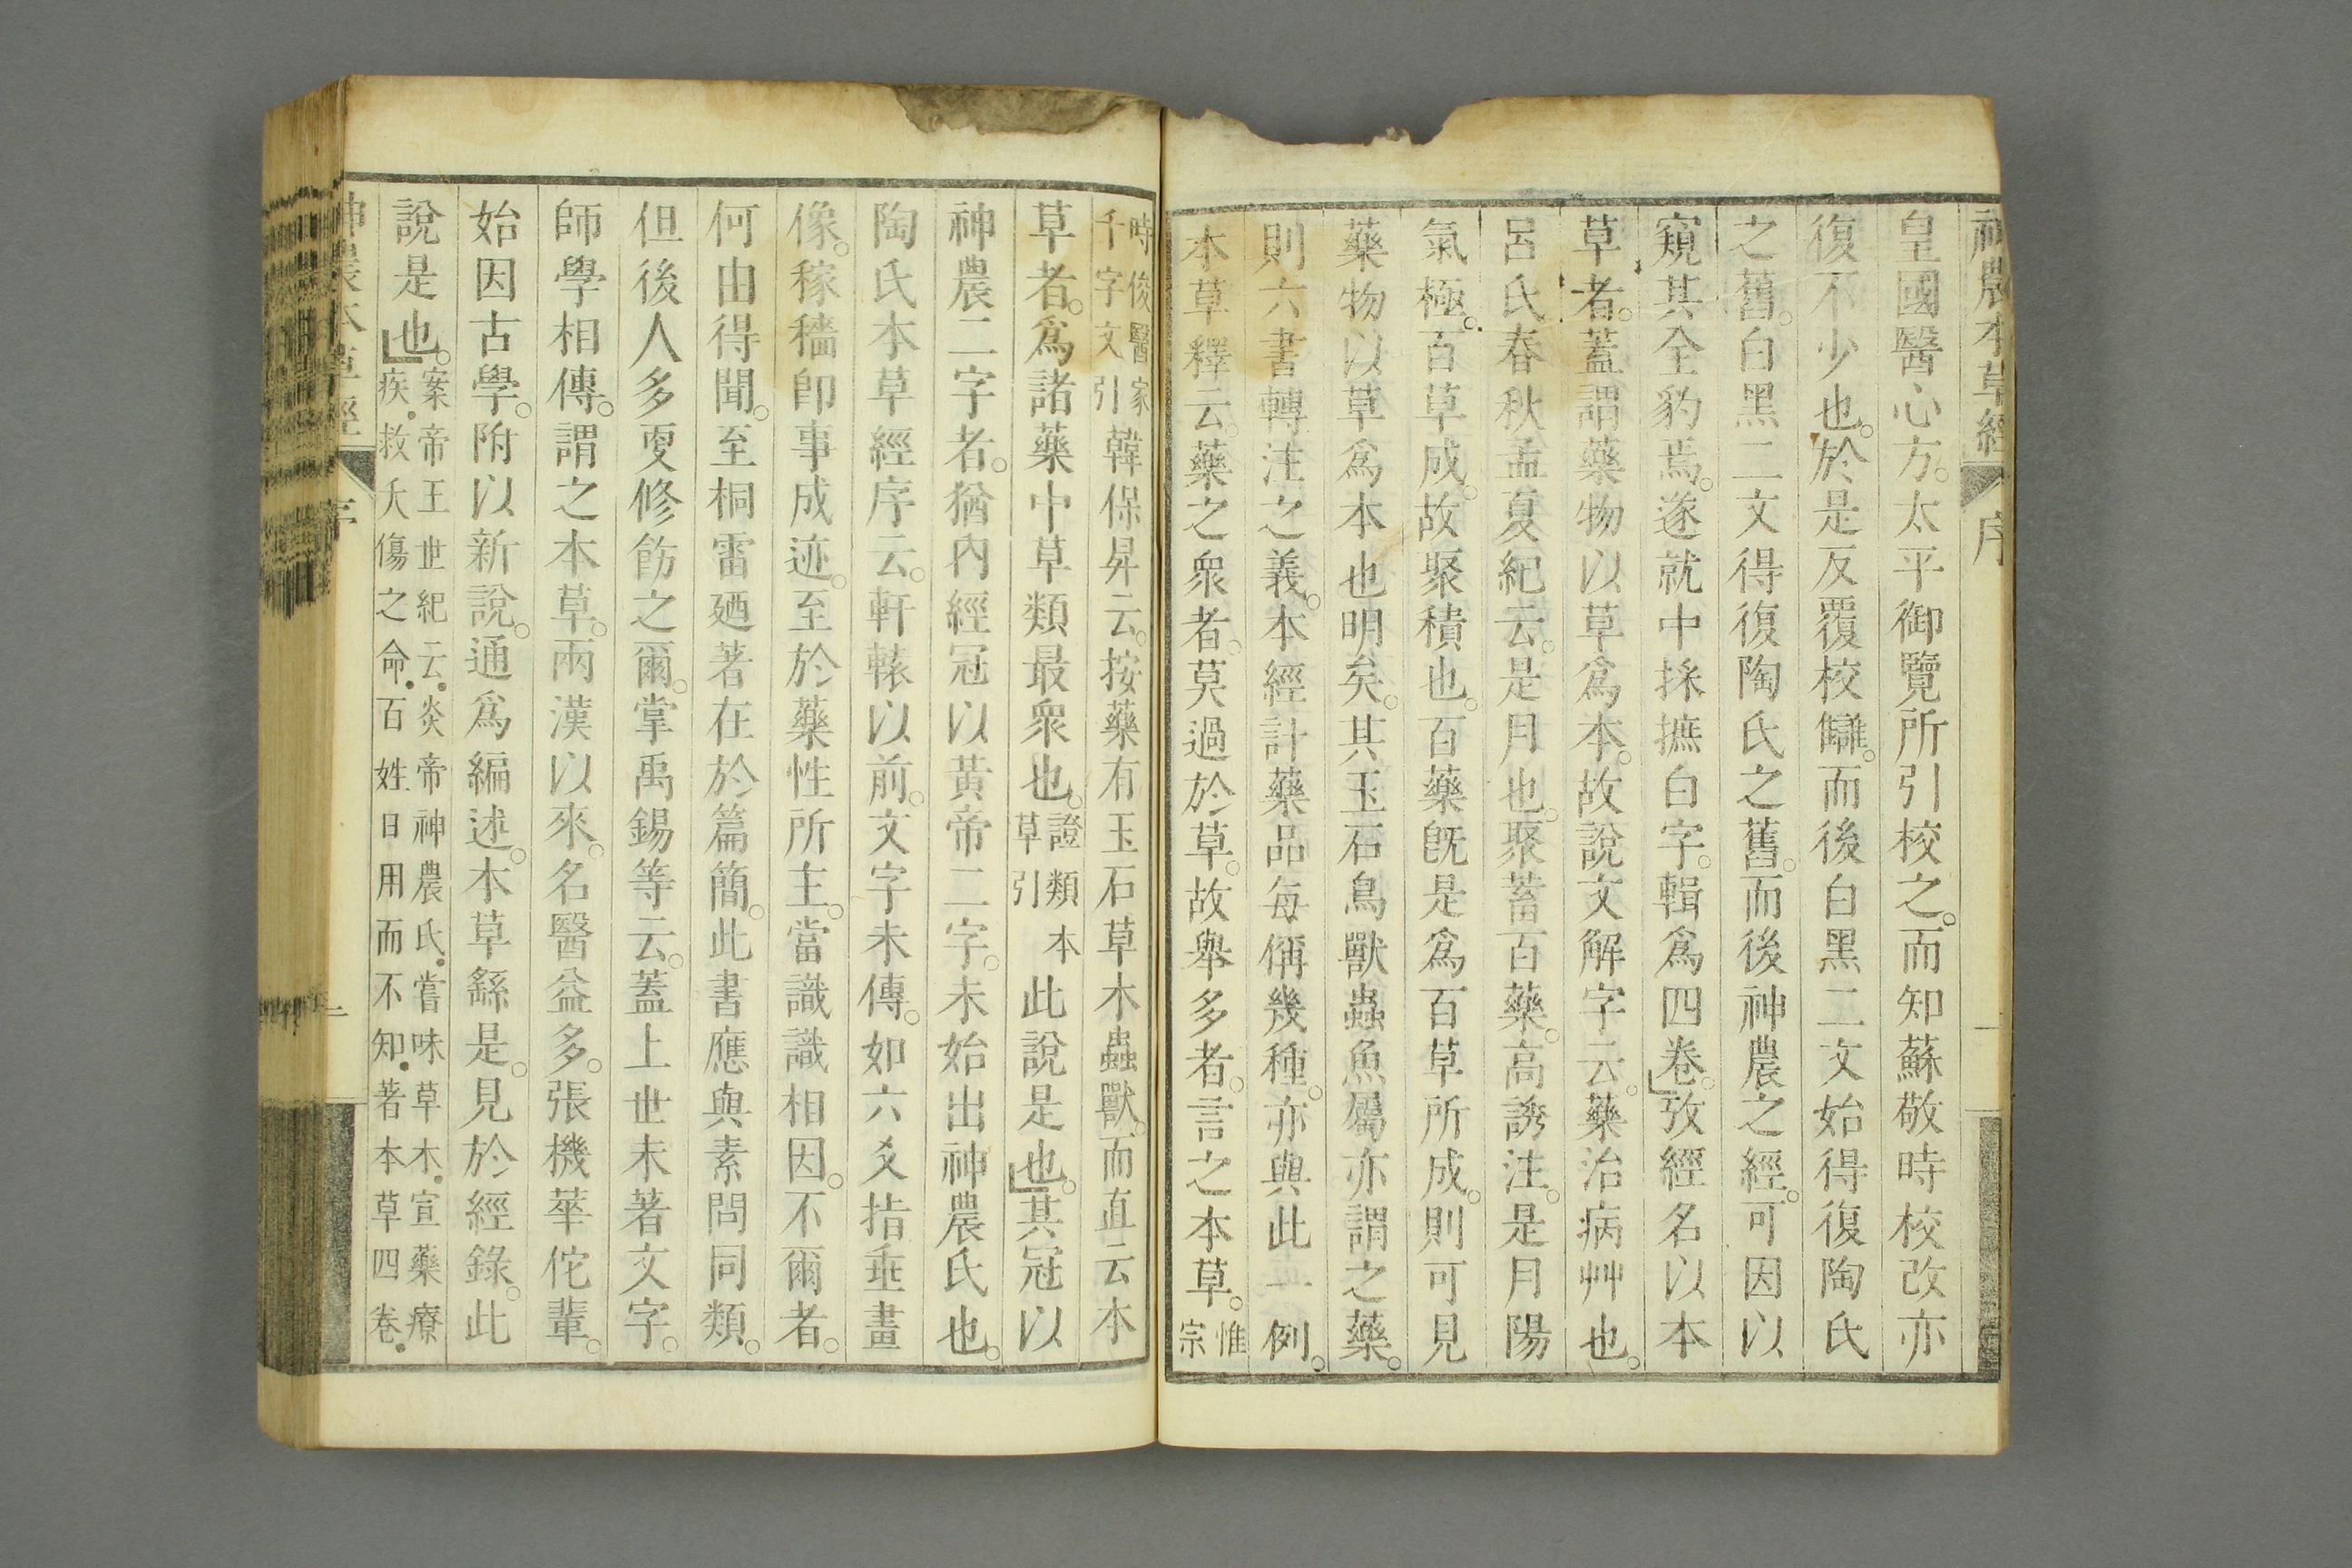 神農本草經 序 一
皇國醫心方。太平御覽所引校之。而知蘇敬時校改亦
復不少也。於是反覆校讎。而後白黑二文始得復陶氏
之舊。白黑二文得復陶氏之舊。而後神農之經。可因以
窺其全豹焉。遂就中採摭白字。輯爲四卷。」攷經名以本
草者。蓋謂藥物以草爲本。故說文解字云。藥治病艸也。
呂氏春秋孟夏紀云。是月也。聚蓄百藥。高誘注。是月陽
氣極。百草成。故聚積也。百藥既是爲百草所成。則可見
藥物以草爲本也明矣。其玉石鳥獸蟲魚屬亦謂之藥。
則六書轉注之義。本經計藥品每偁幾種。亦與此一例。
本草釋云。藥之衆者。莫過於草。故舉多者。言之本草。惟宗
時俊醫家千字文引韓保昇云。按藥有玉石草木蟲獸。而直云本
草者。爲諸藥中草類最衆也。證類本草引此說是也。」其冠以
神農二字者。猶內經冠以黃帝二字。未始出神農氏也。
陶氏本草經序云。軒轅以前。文字未傳。如六爻指垂畫
像。稼穡卽事成迹。至於藥性所主。當識識相因。不爾者。
何由得聞。至桐雷廼著在於篇簡。此書應與素問同類。
但後人多更修飭之爾。掌禹錫等云。蓋上世未著文字。
師學相傳。謂之本草。兩漢以來。名醫益多。張機華佗輩。
始因古學。附以新說。通爲編述。本草繇是。見於經錄。此
說是也。」案帝王世紀云。炎帝神農氏。嘗味草木。宣藥療
疾。救夭傷之命。百姓日用而不知。著本草四卷。
神農本草經 序 一